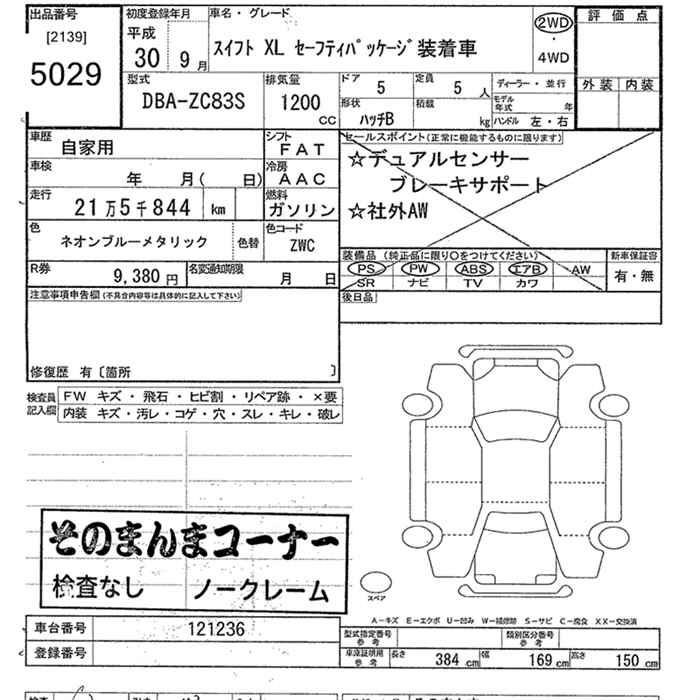 出品番号
[2139]
5029
初度登録年月
平成
30 9月
車名・グレード
スイフト XL セーフティパッケージ装着車
2WD
・
4WD
評価点
外装 内装
型式
DBA-ZC83S
排気量
1200
cc
ドア
5
定員
5 人
形状
ハッチB
積載
kg
ディーラー・並行
モデル年式 年
ハンドル 左・右
車歴
自家用
シフト
FAT
車検
年 月( 日)
冷房
AAC
走行
21万5千844 km
燃料
ガソリン
色
ネオンブルーメタリック
色替
色コード
ZWC
R券
9,380 円
名変通知期限
月 日
セールスポイント(正常に機能するものに限ります)
☆デュアルセンサー
ブレーキサポート
☆社外AW
装備品(純正品に限り○をつけてください)
PS PW ABS エアB AW
SR ナビ TV カワ
新車保証書
有・無
後日品
注意事項申告欄(不具合内容等は具体的に記入して下さい)
修復歴 有〔箇所 〕
検査員
記入欄
FW キズ・飛石・ヒビ割・リペア跡・×要
内装 キズ・汚レ・コゲ・穴・スレ・キレ・破レ
そのまんまコーナー
検査なし ノークレーム
スペア
A-キズ E-エクボ U-凹み W-補修跡 S-サビ C-腐食 XX-交換済
車台番号
121236
登録番号
型式指定番号
参考
類別区分番号
参考
車庫証明用
参考
長さ 384 cm
幅 169 cm
高さ 150 cm